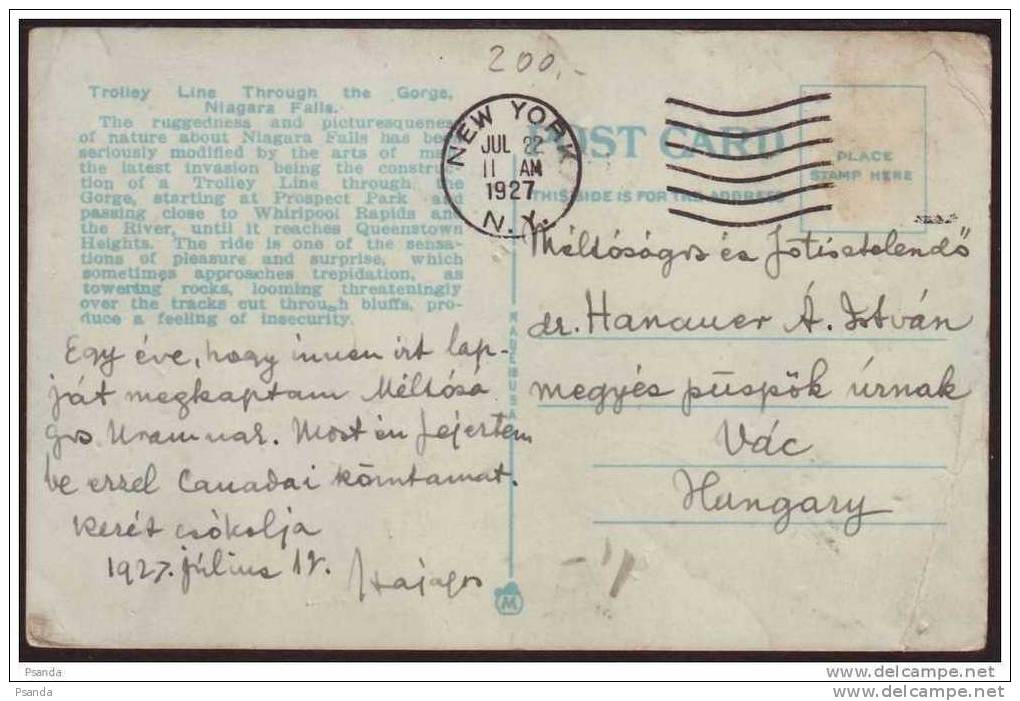 200.-
Trolley Line Through the Gorge,
Niagara Falls.
The ruggedness and picturesqueness
of nature about Niagara Falls has been
seriously modified by the arts of man
the latest invasion being the construc-
tion of a Trolley Line through the
Gorge, starting at Prospect Park and
passing close to Whirlpool Rapids and
the River, until it reaches Queenstown
Heights. The ride is one of the sensa-
tions of pleasure and surprise, which
sometimes approaches trepidation, as
towering rocks, looming threateningly
over the tracks cut through bluffs, pro-
duce a feeling of insecurity.
Egy éve, hogy innen írt lap-
ját megkaptam Méltósá
gos Uramnak. Most én fejeztem
be ezzel Canadai körutamat.
Kezét csókolja
1927. július
Hajagos
NEW YORK
JUL 22
11 AM
1927
N.Y.
POST CARD
THIS SIDE IS FOR THE ADDRESS
PLACE
STAMP HERE
Méltóságos és Főtisztelendő
dr. Hanauer Á. István
megyés püspök úrnak
Vác
Hungary
MADE IN USA
M
Psanda
www.delcampe.net
Psanda
www.delcampe.net